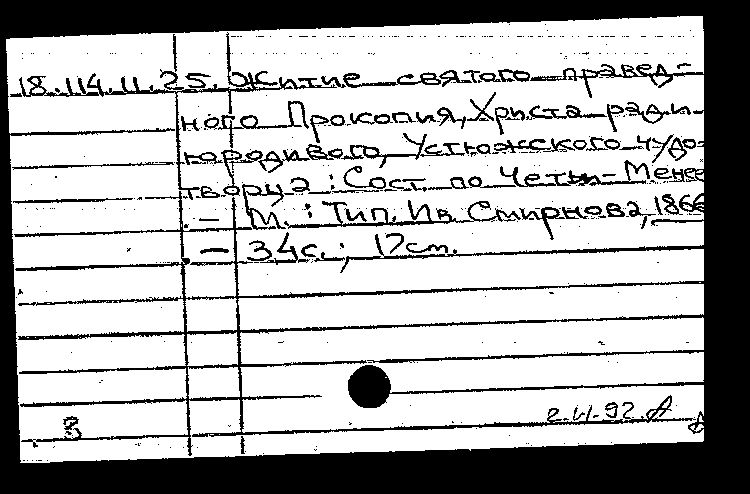 18.114.11.25. Житие святого правед-
ного Прокопия, Христа ради
юродивого, Устюжского чудо-
творца : Сост. по Четьи-Менее
. — М. : Тип. Ив. Смирнова, 1866
. — 34 с. ; 17 см.
В